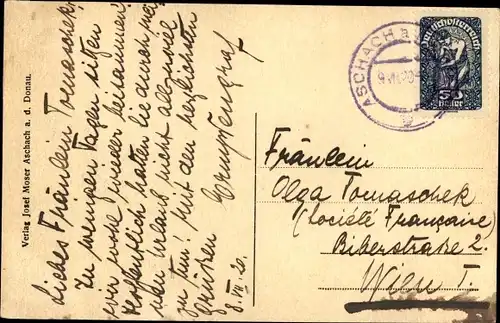 Verlag Josef Moser Aschach a. d. Donau.
Liebes Fräulein Tomaschek,
In wenigen Tagen sitzen
wir wohl wieder beisammen!
Hoffentlich hatten Sie durch
Urlaub nicht allzuviel
zu tun! Mit den herzlichsten
Grüßen
8. VII. 20.
ASCHACH a.
9. VII. 20
Deutschösterreich
50
HELLER
Fräulein
Olga Tomaschek
(Société Française)
Biberstraße 2.
Wien I.